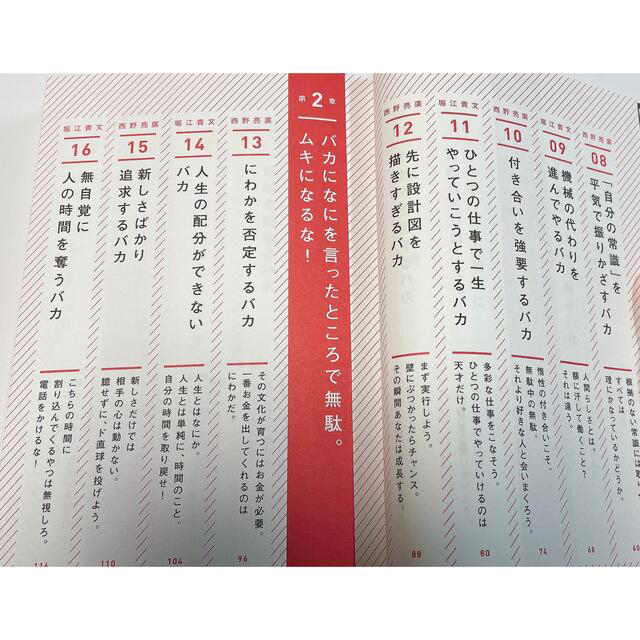 西野亮廣
08
「自分の常識」を
平気で振りかざすバカ
根拠のない常識には
すべては
理にかなっているかどうか。
60
堀江貴文
09
機械の代わりを
進んでやるバカ
人間らしさとは。
額に汗して働くこと？
それは違う。
68
西野亮廣
10
付き合いを強要するバカ
惰性の付き合いこそ、
無駄中の無駄。
それより好きな人と会いまくろう。
74
堀江貴文
11
ひとつの仕事で一生
やっていこうとするバカ
多彩な仕事をこなそう。
ひとつの仕事でやっていけるのは
天才だけ。
80
西野亮廣
12
先に設計図を
描きすぎるバカ
まず実行しよう。
壁にぶつかったらチャンス。
その瞬間あなたは成長する。
88
第2章
バカになにを言ったところで無駄。
ムキになるな！
西野亮廣
13
にわかを否定するバカ
その文化が育つにはお金が必要。
一番お金を出してくれるのは
にわかだ。
96
堀江貴文
14
人生の配分ができない
バカ
人生とはなにか。
人生とは単純に、時間のこと。
自分の時間を取り戻せ！
104
西野亮廣
15
新しさばかり
追求するバカ
新しさだけでは
相手の心は動かない。
臆せずに、ド直球を投げよう。
110
堀江貴文
16
無自覚に
人の時間を奪うバカ
こちらの時間に
割り込んでくるやつは無視しろ。
電話をかけるな！
116